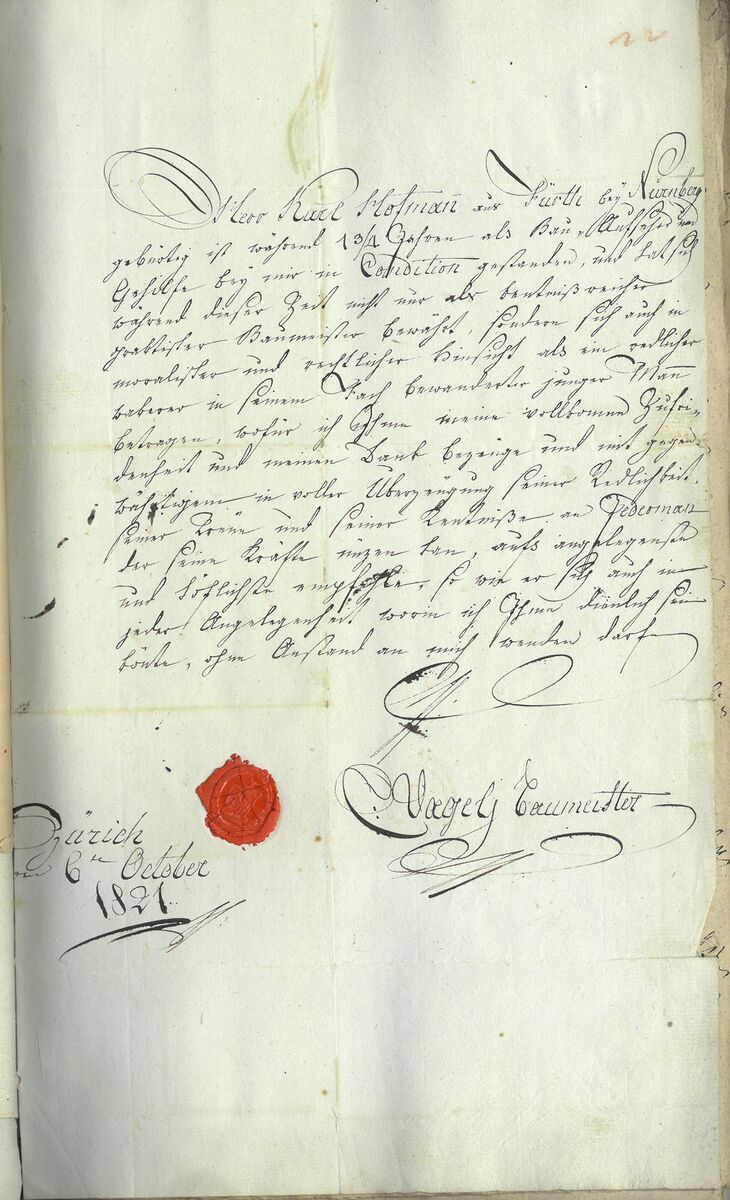 Herr Karl Hofmañ aus Fürth bey Nürnberg
gebürtig ist während 1 3/4 Jahren als Bau-Aufseher und
Gehilfe bey mir in Condition gestanden, und hat sich
während dieser Zeit nicht nur als kentnißreicher
praktischer Baumeister bewährt, sondern sich auch in
moralischer und rechtlicher Hinsicht als ein redlicher
wakerer in seinem Fach bewanderter junger Mann
betragen, wofür ich Ihme meine vollkomne Zufri-
denheit und meinen Dank bezeuge und mit gegen-
währtigem in voller Überzeugung seiner Redlichkeit,
seiner Treüe und seiner Kentniße an Jederman
der seine Kräfte nüzen kan, aufs angelegenste
und höflichste empfehle, so wie er sich auch in
jeder Angelegenheit worin ich Ihme dienlich sein
könte, ohne Anstand an mich wenden darf
Vögelj Baumeister
Zürich
den 6ten October
1821